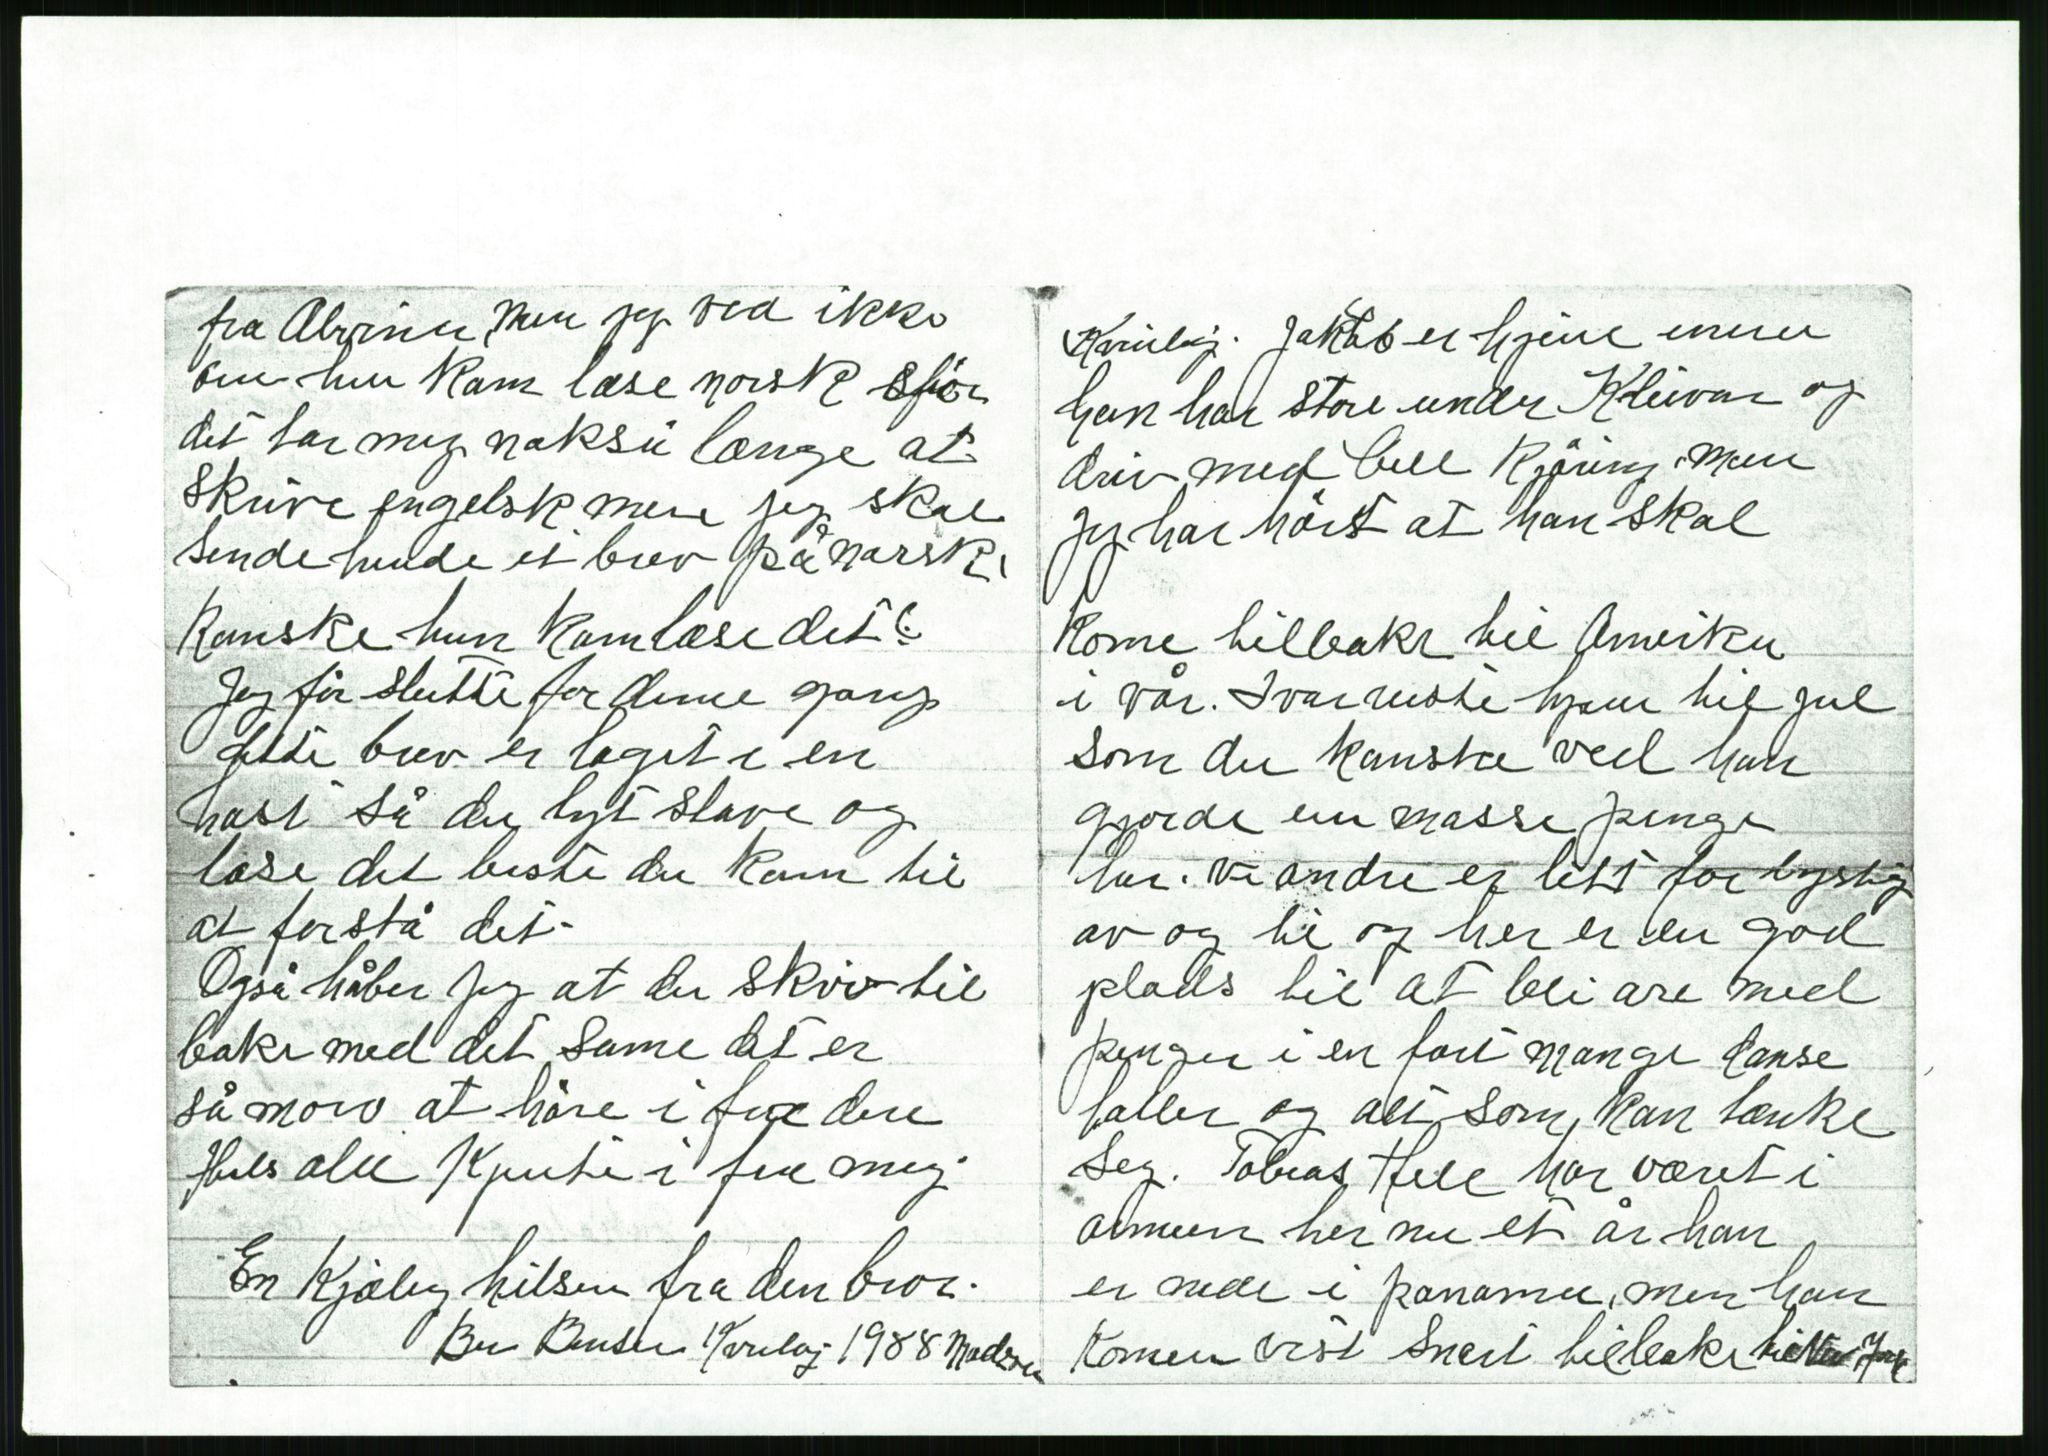 fra Alvina, Men jeg ved ikke
om hun kann læse norsk før
det tar meg nokså længe at
skrive engelsk mene jeg skal
sende hende et brev på norsk.
Kanske hun kann læse det?
Jeg får slutte for denne gang
dette brev er laget i en
hast så du lyt stave og
læse det beste du kann til
at forstå det.
Også håber jeg at du skriv til
bake med det same det er
så moro at høre i fra dere
Hils alle kjente i fra meg.
En Kjælig hilsen fra din bror.
Ben Bensen Kvinlaj 1988 Madison
Kvinlaj. Jakob er hjeme enen
han har store under Kleivan og
driv med bill Kjøring. Men
jeg har hørt at han skal
kome tilbake til Amerika
i vår. Ivar reiste hjem til jul
som du kanske ved han
gjorde en masse penge
her. Vi andre er litt for lystig
av og til og her er en god
plads til at bli are med
penger i en fart mange danse
haller og alt som kan tænke
seg. Tobias Hell har været i
armeen her nu et år han
er nede i panama, men han
komer vist snart tilbake til New York